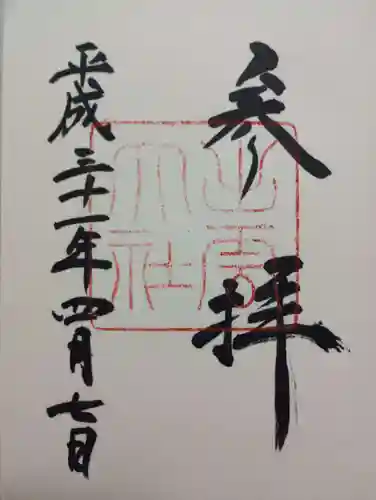 参拝
出雲大社
平成三十一年四月七日